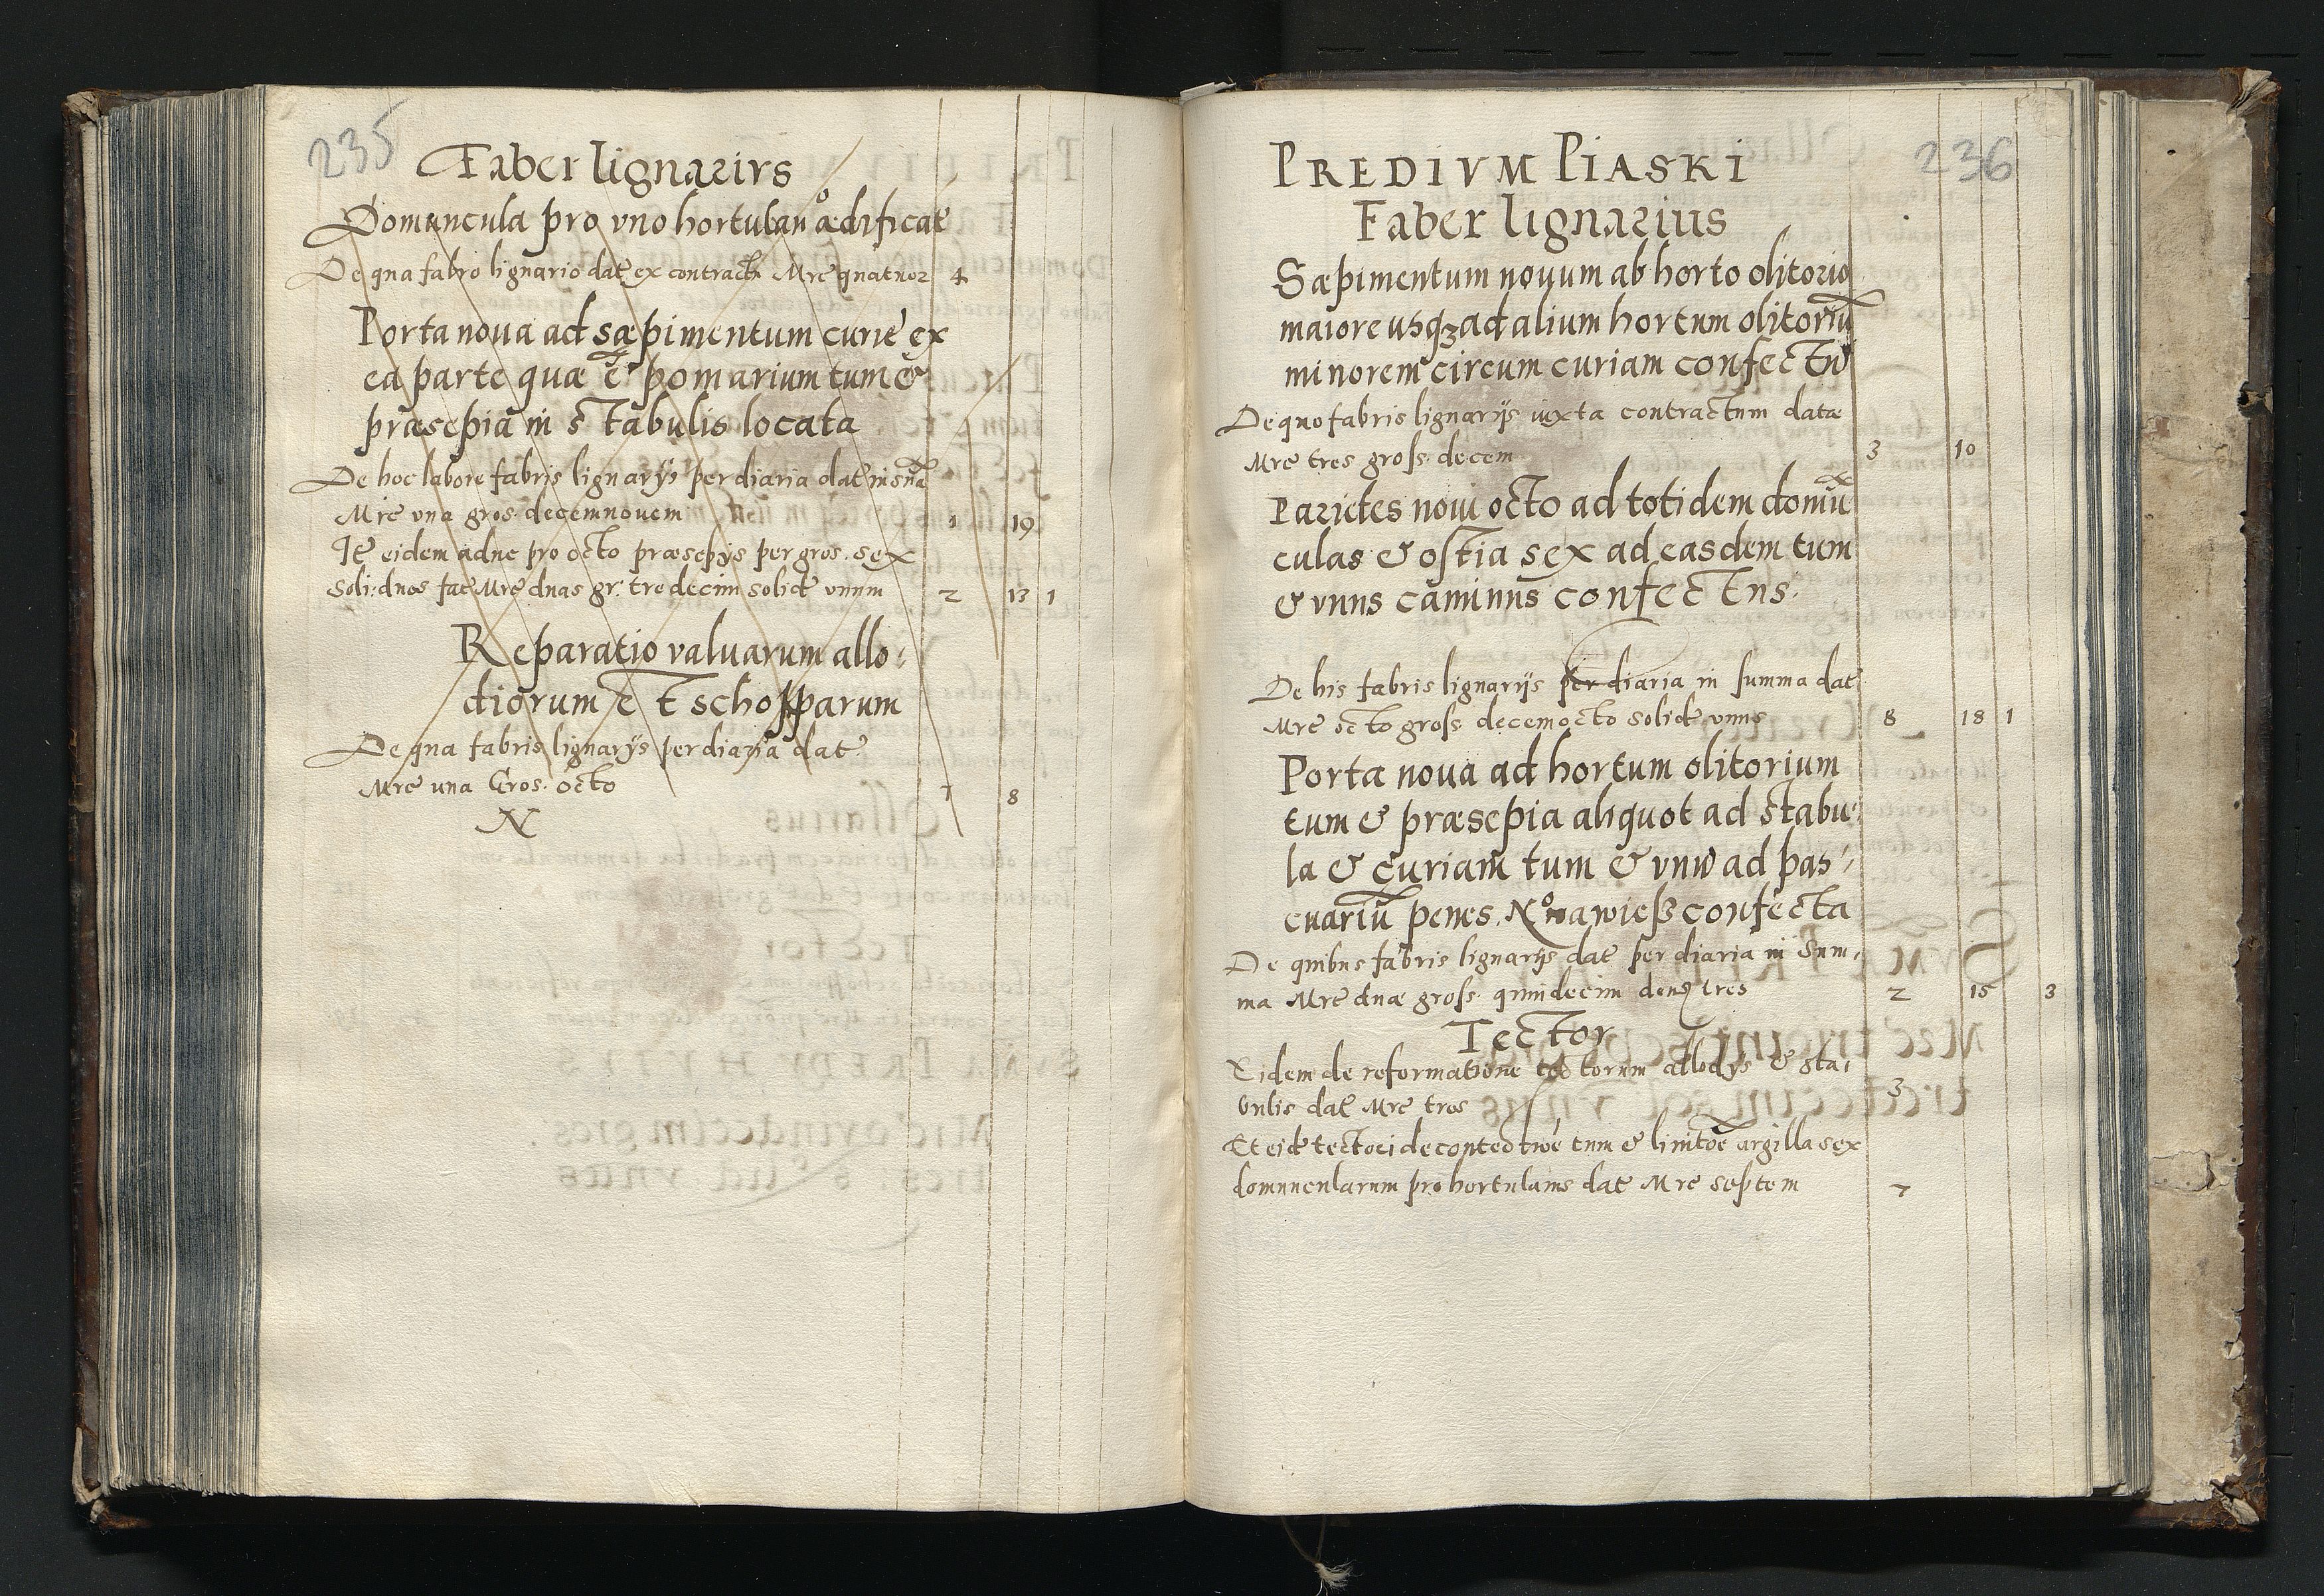 235
Faber lignarivs
Domuncula pro vno hortulano ædificat
De qua fabro lignario dat ex contractu Mre quatuor 4
Porta noua ad sæpimentum curie ex
ea parte qua ē pomarium tum &
præsepia in stabulis locata
De hoc labore fabris lignarijs per diaria dat in sūa
Mre vna gros. decemnouem 1 19
Itē eidem adhuc pro octo præsepijs per gros. sex
soli: duos fac Mre duas gr. tredecim solid vnum 2 13 1
Reparatio valuarum allo:
diorum et schopparum
De qua fabris lignarijs per diaria dat
Mre una Gros. octo 1 8
N
236
PREDIVM PIASKI
Faber lignarius
Sæpimentum nouum ab horto olitorio
maiore usqȝ ad alium hortum olitoriū
minorem circum curiam confectū
De quo fabris lignarijs iuxta contractum datæ
Mre tres gross. decem 3 10
Parietes noui octo ad totidem domū
culas & ostia sex ad easdem tum
& vnus caminus confectus.
De his fabris lignarijs per diaria in summa dat
Mre octo gross. decemocto solid vnus 8 18 1
Porta noua ad hortum olitorium
tum & præsepia aliquot ad stabu:
la & curiam tum & vnū ad pas:
cuariū penes confecta
De quibus fabris lignarijs dat per diaria in sum:
ma Mre duæ gross. quindecim den tres 2 15 3
Tector
Eidem de reformatione tectorum allodijs & sta:
bulis dat Mre tres 3
Et eid tectori de contectiōe tum & linitōe argilla sex
domuncularum pro hortulanis dat Mre septem 7